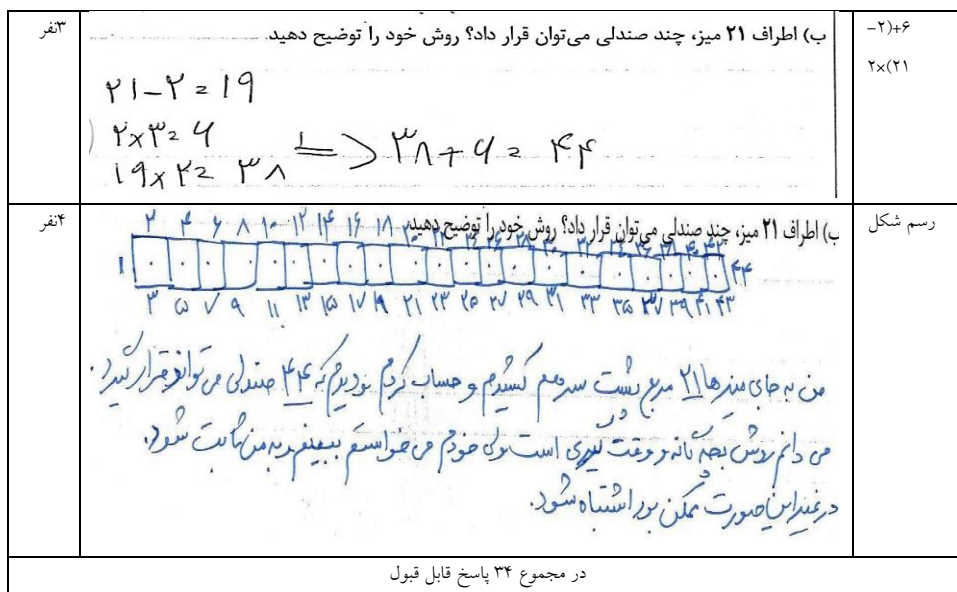 ۶+(۲–
۲×(۲۱
ب) اطراف ۲۱ میز، چند صندلی می‌توان قرار داد؟ روش خود را توضیح دهید.
۳نفر
۲۱-۲=۱۹
۲×۳=۶
۱۹×۲=۳۸
=> ۳۸+۶=۴۴
رسم شکل
ب) اطراف ۲۱ میز، چند صندلی می‌توان قرار داد؟ روش خود را توضیح دهید.
۴نفر
۲ ۴ ۶ ۸ ۱۰ ۱۲ ۱۴ ۱۶ ۱۸ ۲۰ ۲۲ ۲۴ ۲۶ ۲۸ ۳۰ ۳۲ ۳۴ ۳۶ ۳۸ ۴۰ ۴۲
۱ ۴۴
۳ ۵ ۷ ۹ ۱۱ ۱۳ ۱۵ ۱۷ ۱۹ ۲۱ ۲۳ ۲۵ ۲۷ ۲۹ ۳۱ ۳۳ ۳۵ ۳۷ ۳۹ ۴۱ ۴۳
من به جای میزها ۲۱ مربع پشت سر هم کشیدم و حساب کردم که ۴۴ صندلی می‌تواند قرار گیرد.
می دانم روش بچه گانه و وقت گیری است ولی خودم می خواستم ببینم و به من ثابت شود.
در غیر این صورت ممکن بود اشتباه شود.
در مجموع ۳۴ پاسخ قابل قبول